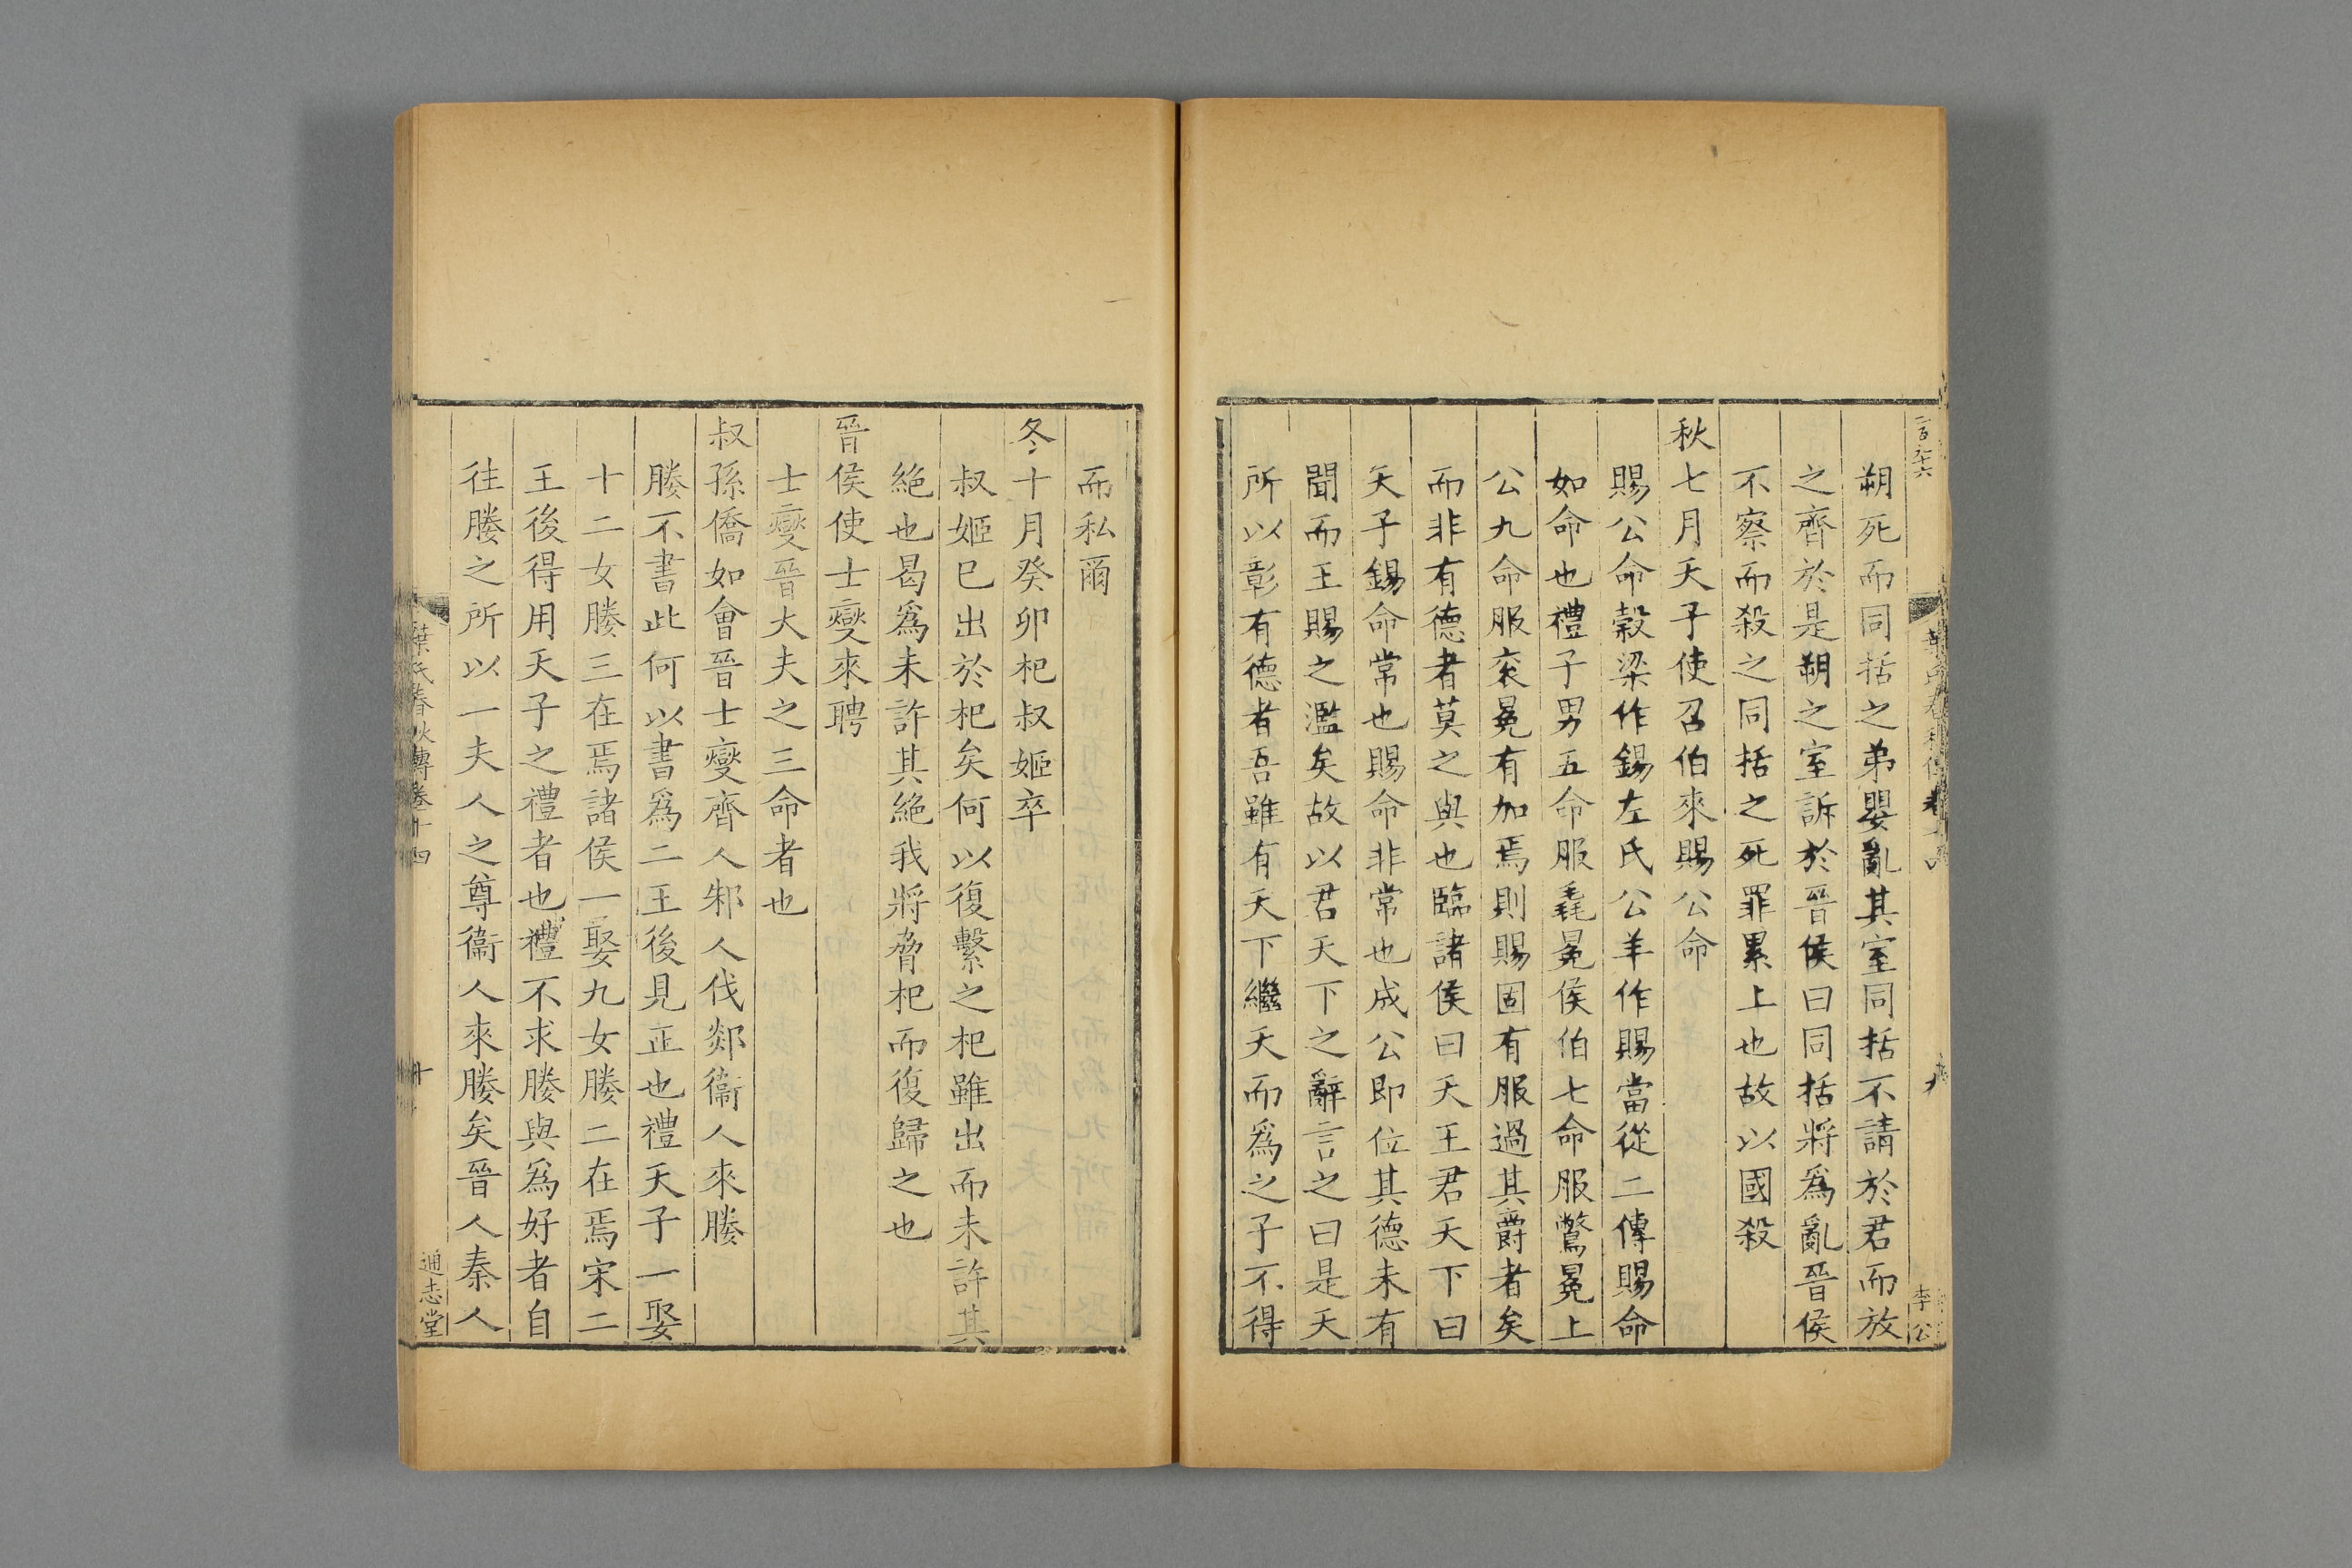 朔死而同括之弟嬰亂其室同括不請於君而放
之齊於是朔之室訴於晉侯曰同括將爲亂晉侯
不察而殺之同括之死罪累上也故以國殺
秋七月天子使召伯來賜公命
賜公命榖梁作錫左氏公羊作賜當從二傳賜命
如命也禮子男五命服毳冕侯伯七命服鷩冕上
公九命服衮冕有加焉則賜固有服過其爵者矣
而非有德者莫之與也臨諸侯曰天王君天下曰
天子錫命常也賜命非常也成公即位其德未有
聞而王賜之濫矣故以君天下之辭言之曰是天
所以彰有德者吾雖有天下繼天而爲之子不得
李公
而私爾
冬十月癸卯杞叔姬卒
叔姬巳出於杞矣何以復繫之杞雖出而未許其
絶也曷爲未許其絶我將脅杞而復歸之也
晉侯使士燮來聘
士燮晉大夫之三命者也
叔孫僑如會晉士燮齊人邾人伐郯衞人來媵
媵不書此何以書爲二王後見正也禮天子一娶
十二女媵三在焉諸侯一娶九女媵二在焉宋二
王後得用天子之禮者也禮不求媵與爲好者自
往媵之所以一夫人之尊衞人來媵矣晉人秦人
葉氏春秋傳卷十四
十
通志堂